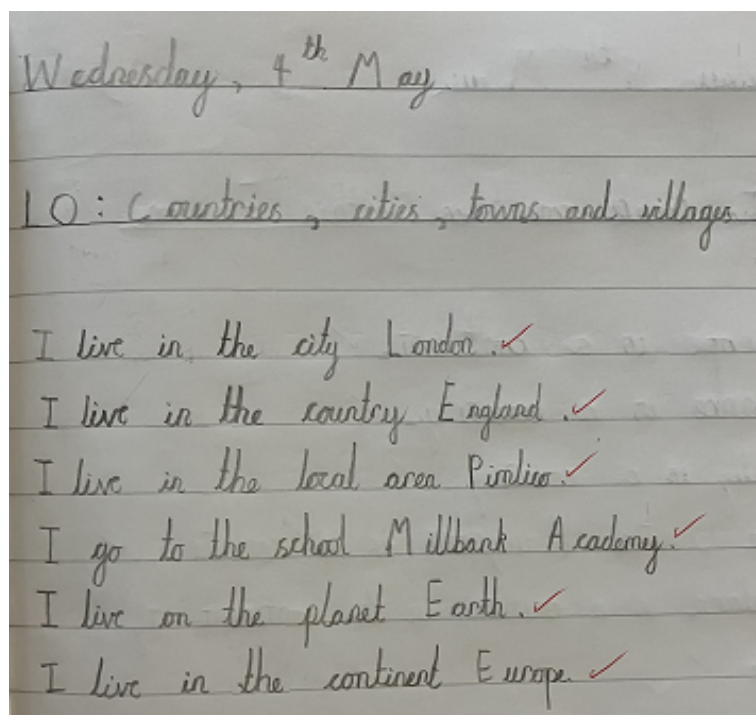 Wednesday, 4th May
LO: Countries, cities, towns and villages
I live in the city London.
I live in the country England.
I live in the local area Pimlico.
I go to the school Millbank Academy.
I live on the planet Earth.
I live in the continent Europe.